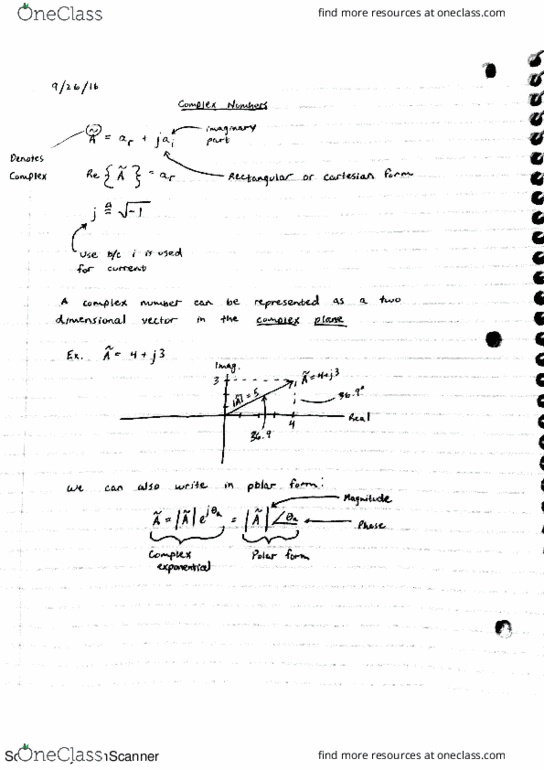 OneClass
find more resources at oneclass.com
9/26/16
Complex Numbers
Ã = aᵣ + jaᵢ
imaginary part
Denotes Complex
Re { Ã } = aᵣ
Rectangular or cartesian form
j ≜ √-1
Use b/c i is used
for current
A complex number can be represented as a two
dimensional vector in the complex plane
Ex. Ã = 4 + j3
Imag.
3
Ã = 4+j3
|Ã| = 5
36.9°
4
Real
36.9
We can also write in polar form:
Magnitude
Ã = |Ã| e^jθₐ = |Ã| ∠θₐ
Phase
Complex exponential
Polar form
OneClass
Scanner
find more resources at oneclass.com